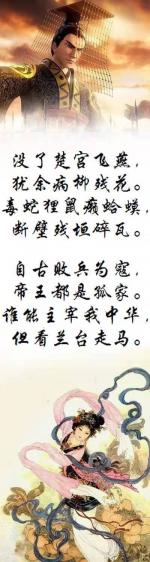 没了楚宫飞燕，
犹余病柳残花。
毒蛇狸鼠癞蛤蟆，
断壁残垣碎瓦。
自古败兵为寇，
帝王都是孤家。
谁能主牢我中华，
但看兰台走马。